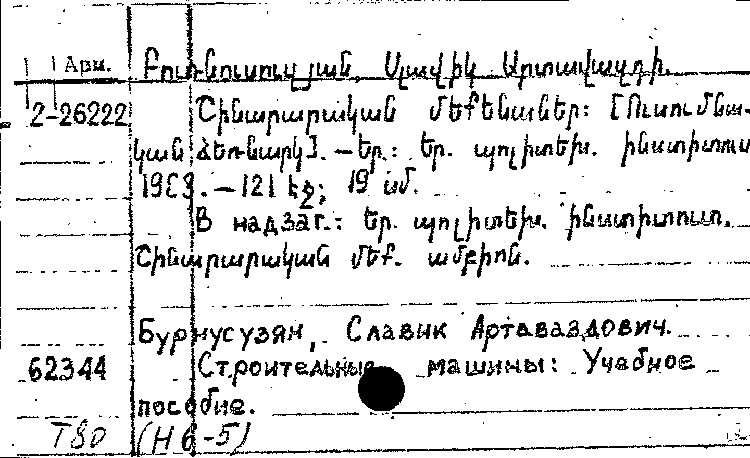 Арм. Բուռնուսուզյան, Սլավիկ Արտավազդի.
2-26222 Շինարարական մեքենաներ: [Ուսումնա-
կան ձեռնարկ]. – Եր.: Եր. պոլիտեխ. ինստիտուտ
1983. – 121 էջ; 19 սմ.
В надзаг.: Եր. պոլիտեխ. ինստիտուտ.
Շինարարական մեք. ամբիոն.
Бурнусузян, Славик Артаваздович.
62344 Строительные машины: Учебное
пособие.
T80 (Н 6-5)